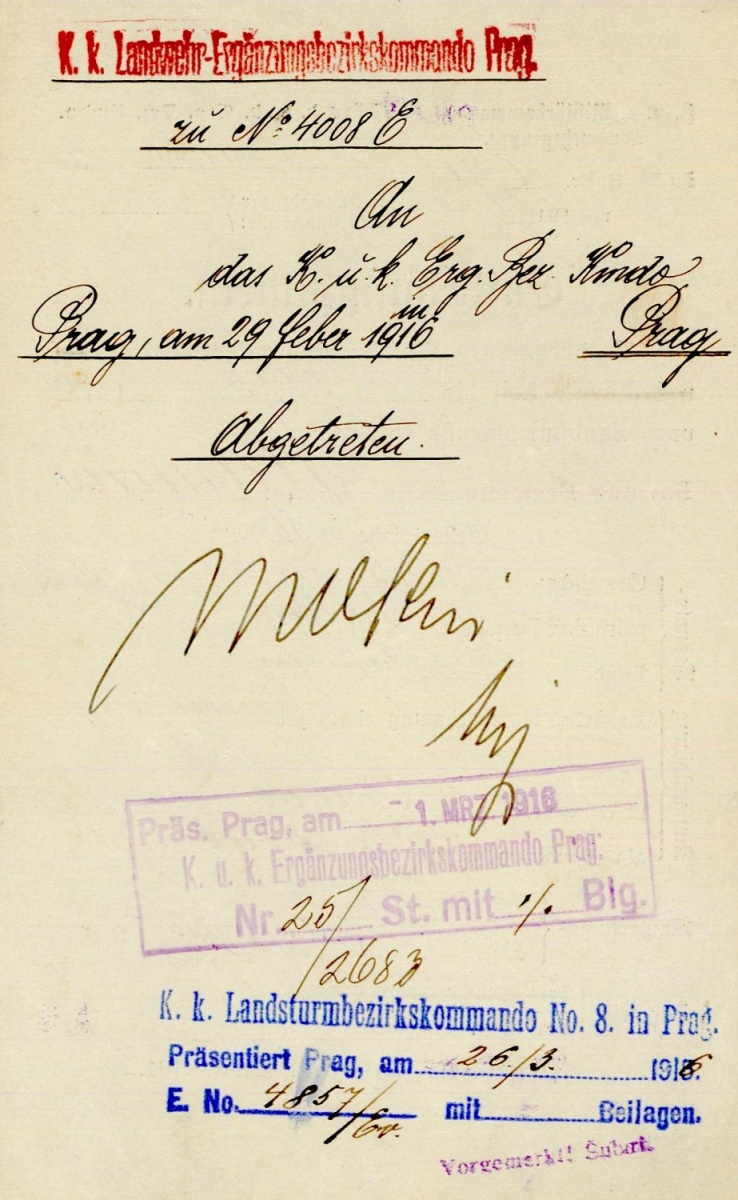 K. k. Landwehr-Ergänzungsbezirkskommando Prag.
zu No: 4008 E
An
das K. u. k. Erg. Bez. Kmdo
in
Prag, am 29 feber 1916 Prag
Abgetreten.
Präs. Prag, am - 1. MRZ. 1916
K. u. k. Ergänzungsbezirkskommando Prag:
Nr. 25/ St. mit ./. Blg.
2683
K. k. Landsturmbezirkskommando No. 8. in Prag.
Präsentiert Prag, am 26/3. 1916.
E. No. 4857/Ev. mit Beilagen.
Vorgemerkt!